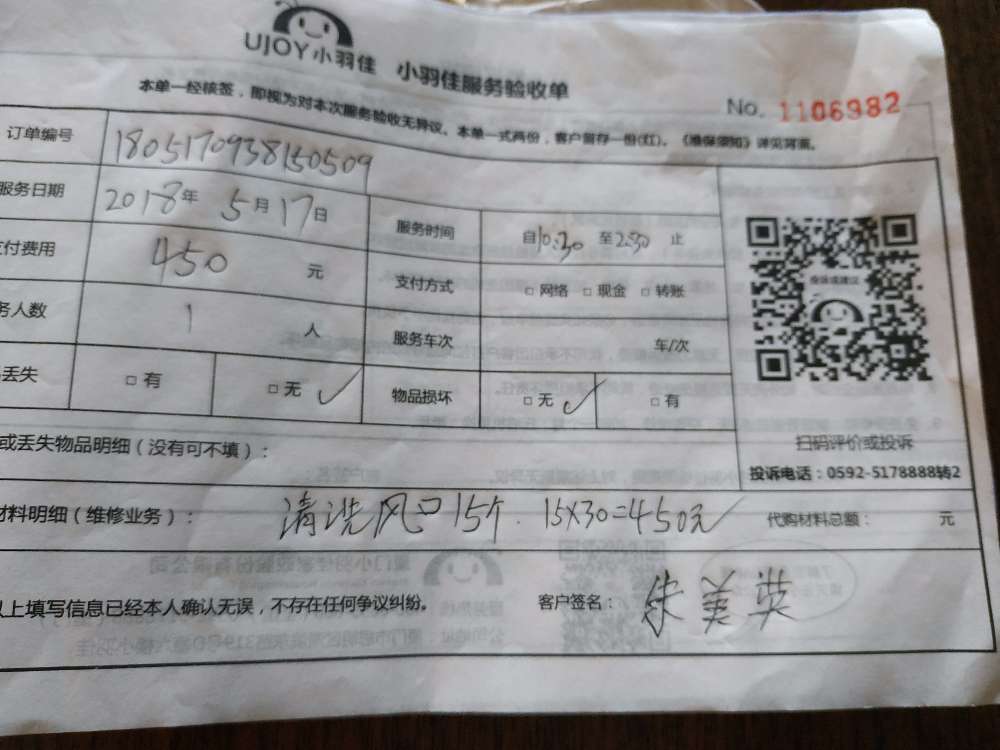 UJOY小羽佳 小羽佳服务验收单
本单一经核签，即视为对本次服务验收无异议。本单一式两份，客户留存一份(红)。《维保须知》详见背面。
No. 1106982
订单编号 1805170938150509
服务日期 2018年 5月17日 服务时间 自10:30 至2:30 止
付费用 450 元 支付方式 □ 网络 □ 现金 □ 转账
务人数 1 人 服务车次 车/次
丢失 □ 有 □ 无 ✓ 物品损坏 □ 无 ✓ □ 有
扫码评价或投诉
投诉电话：0592-5178888转2
或丢失物品明细（没有可不填）：
材料明细（维修业务）： 清洗风口15个. 15X30=450元 代购材料总额： 元
以上填写信息已经本人确认无误，不存在任何争议纠纷。 客户签名： 朱美英